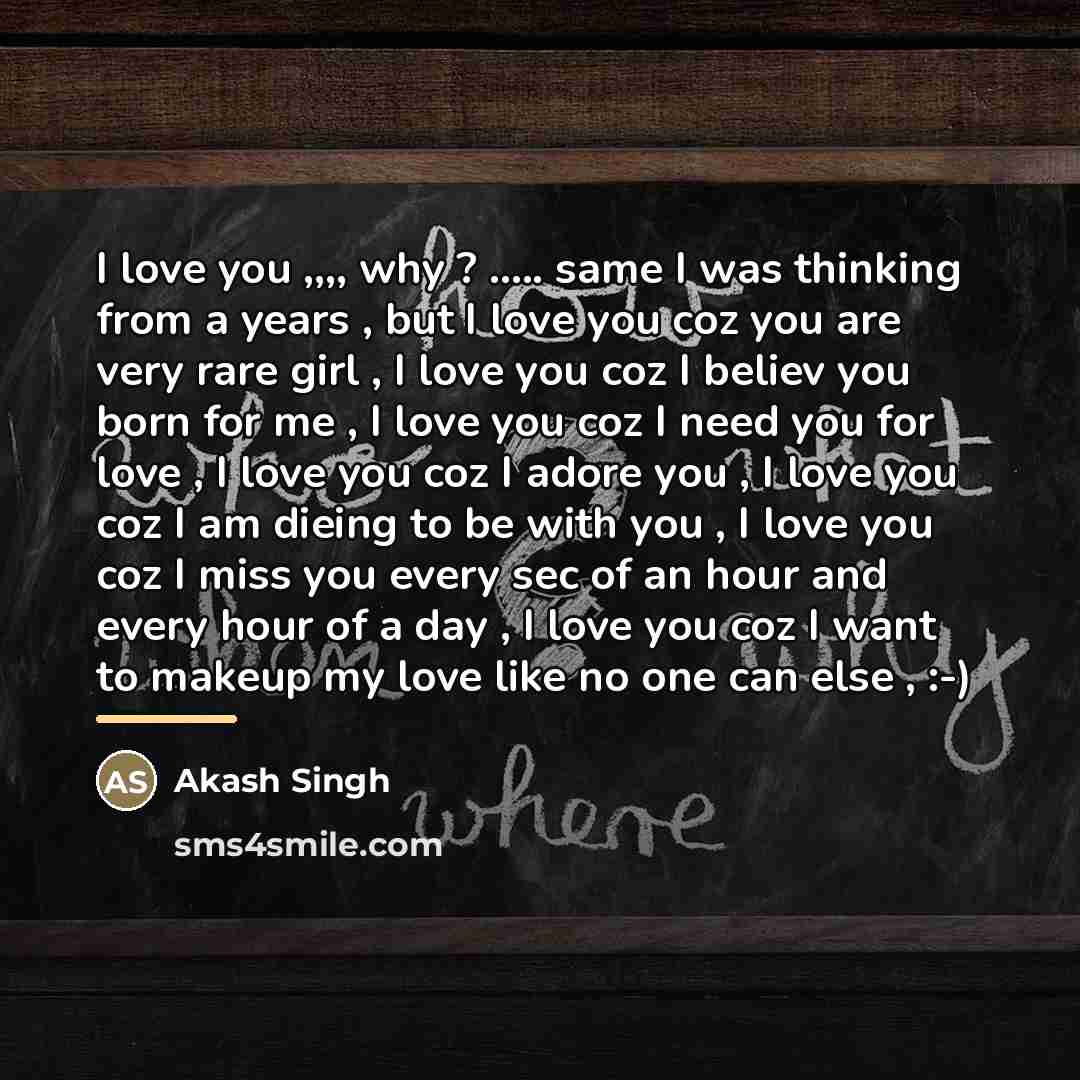 I love you ,,,, why ? ..... same I was thinking
from a years , but I love you coz you are
very rare girl , I love you coz I believ you
born for me , I love you coz I need you for
love , I love you coz I adore you , I love you
coz I am dieing to be with you , I love you
coz I miss you every sec of an hour and
every hour of a day , I love you coz I want
to makeup my love like no one can else , :-)
AS Akash Singh
sms4smile.com
how
who ? what
when why
where